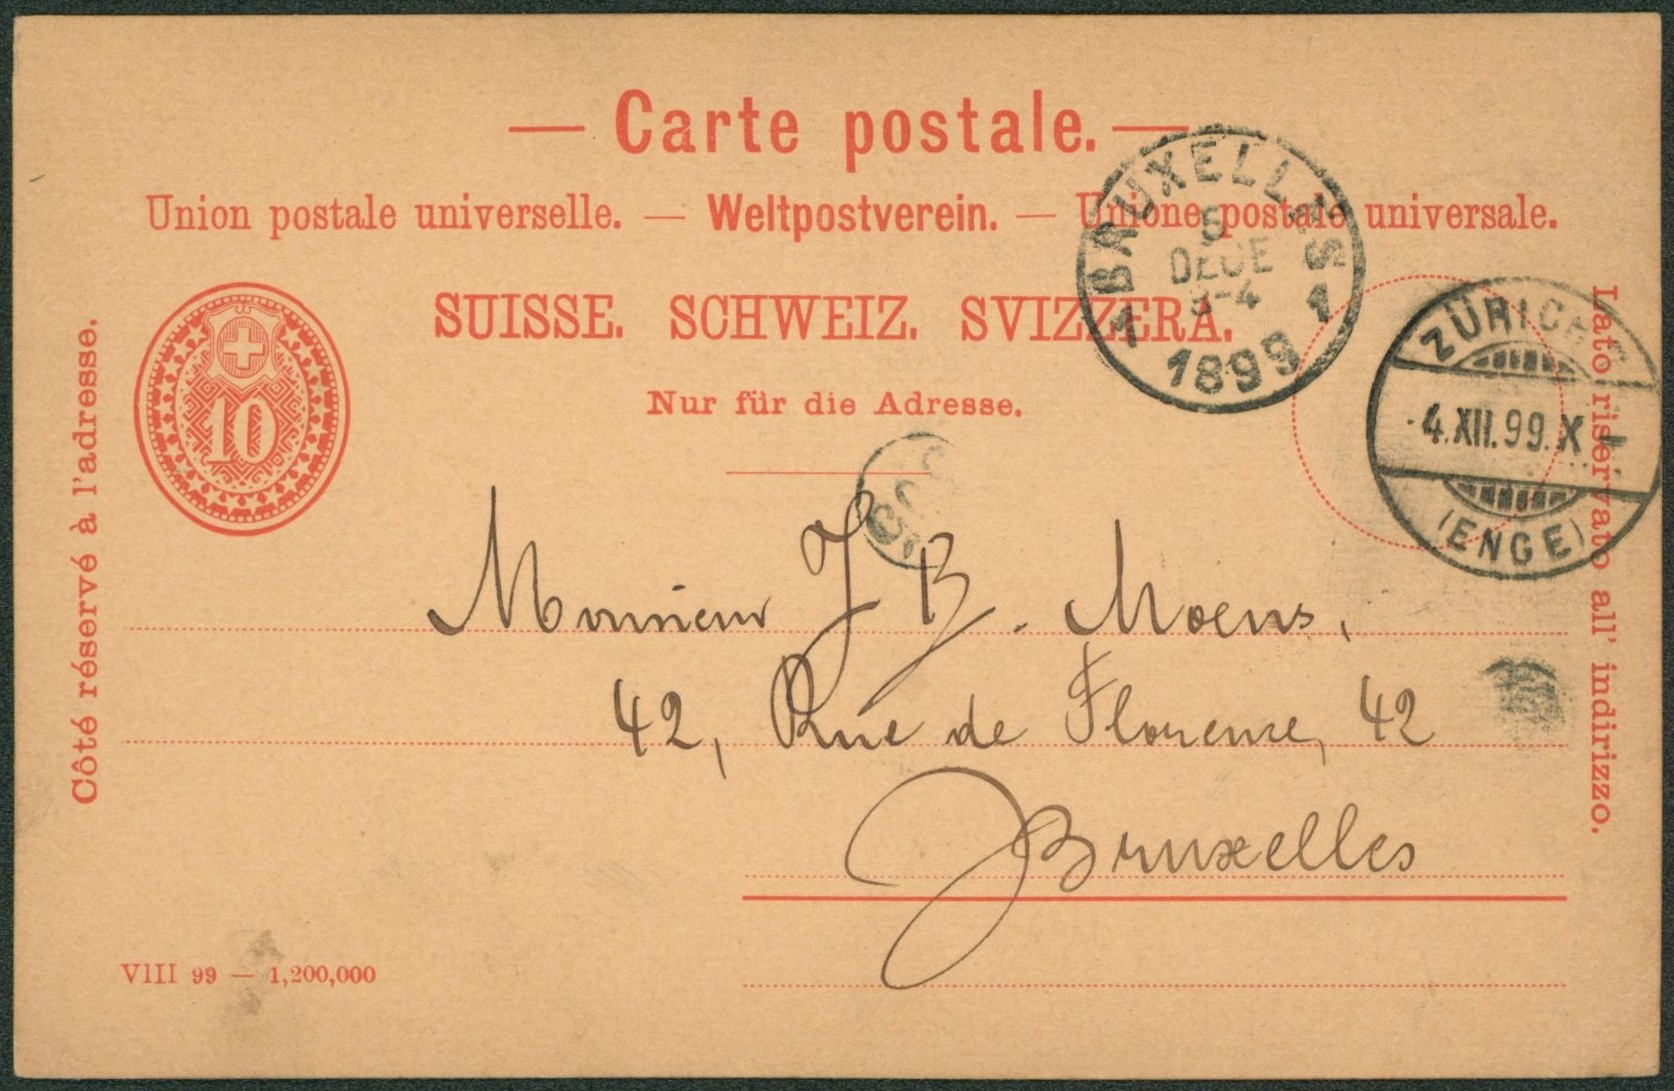 Carte postale.
Union postale universelle. — Weltpostverein. — Unione postale universale.
SUISSE. SCHWEIZ. SVIZZERA.
Nur für die Adresse.
10
Côté réservé à l'adresse.
Lato riservato all' indirizzo.
1 BRUXELLES 1
5
DECE
3-4
1899
ZÜRICH
-4.XII.99.X
(ENGE)
Monsieur J B. Moens,
42, Rue de Florence, 42
Bruxelles
VIII 99 — 1,200,000